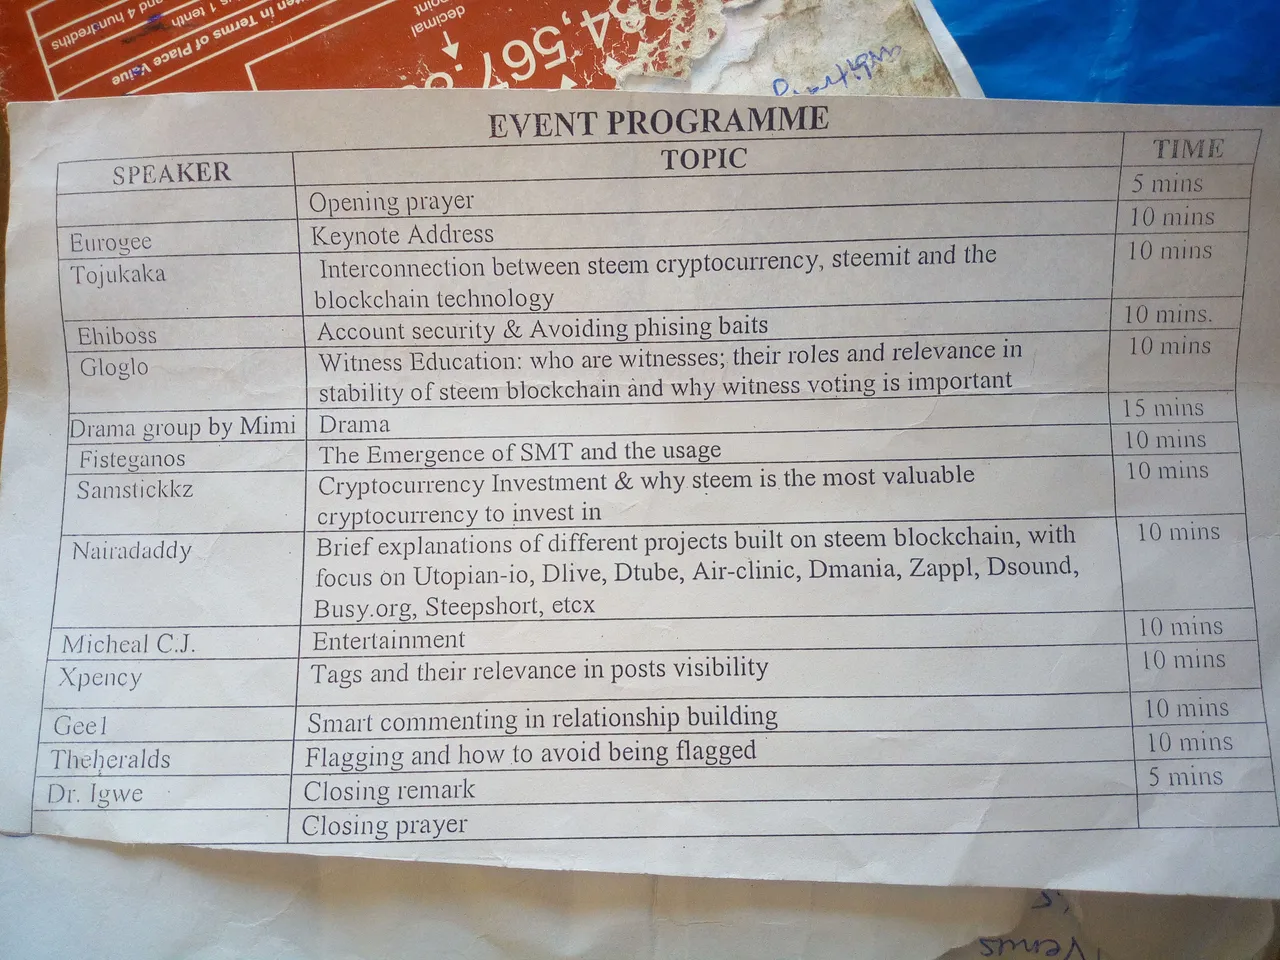 and 4 hundredths
us 1 tenth
ten in Terms of Place Value
decimal
point
34,567.8
EVENT PROGRAMME
SPEAKER TOPIC TIME
Opening prayer 5 mins
Eurogee Keynote Address 10 mins
Tojukaka Interconnection between steem cryptocurrency, steemit and the 10 mins
blockchain technology
Ehiboss Account security & Avoiding phising baits 10 mins.
Gloglo Witness Education: who are witnesses; their roles and relevance in 10 mins
stability of steem blockchain and why witness voting is important
Drama group by Mimi Drama 15 mins
Fisteganos The Emergence of SMT and the usage 10 mins
Samstickkz Cryptocurrency Investment & why steem is the most valuable 10 mins
cryptocurrency to invest in
Nairadaddy Brief explanations of different projects built on steem blockchain, with 10 mins
focus on Utopian-io, Dlive, Dtube, Air-clinic, Dmania, Zappl, Dsound,
Busy.org, Steepshort, etcx
Micheal C.J. Entertainment 10 mins
Xpency Tags and their relevance in posts visibility 10 mins
Gee1 Smart commenting in relationship building 10 mins
Theheralds Flagging and how to avoid being flagged 10 mins
Dr. Igwe Closing remark 5 mins
Closing prayer
is
Venus